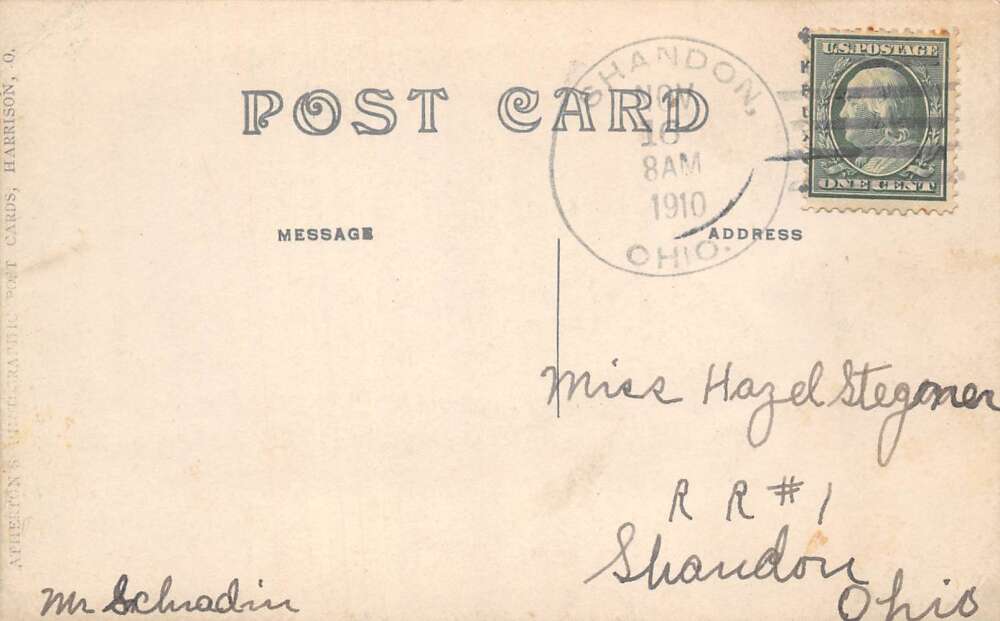 POST CARD
SHANDON,
NOV
16
8AM
1910
OHIO.
U.S. POSTAGE
ONE CENT
MESSAGE
ADDRESS
Miss Hazel Stegmer
R R #1
Shandon
Ohio
Mr Schradin
ATHERTON'S PHOTOGRAPHIC POST CARDS, HARRISON, O.